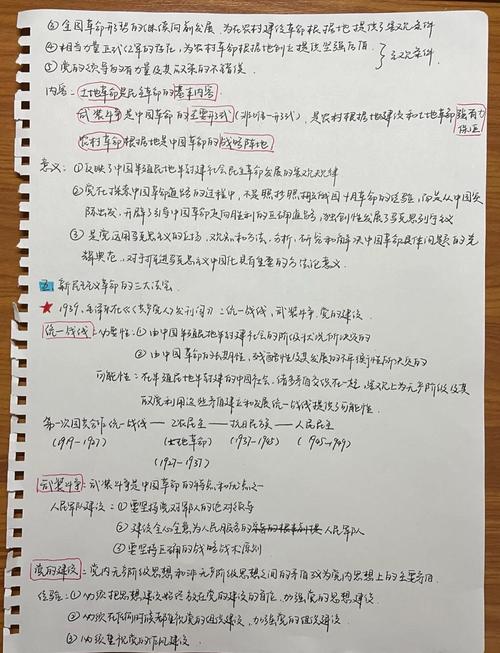 ③ 全国革命形势的继续向前发展,为在农村建设革命根据地提供了客观条件
④ 相当力量正式红军的存在,为农村革命根据地创立提供坚强后盾 } 主观条件
⑤ 党的领导的有力量及其政策的不错误
内容:土地革命是民主革命的基本内容
武装斗争是中国革命的主要形式(非唯一形式),是农村根据地建设和土地革命强有力保证
农村革命根据地是中国革命的战略阵地
意义:①反映了中国半殖民地半封建社会民主革命发展的客观规律
②党在探索中国革命道路的过程中,不是照抄照搬俄国十月革命的经验,而是从中国实
际出发,开辟了引导中国革命走向胜利的正确道路,独创性发展了马克思列宁主义
③ 是党运用马克思主义的立场,观点和方法,分析,研究和解决中国革命具体问题的光
辉典范,对于推进马克思主义中国化具有重要的方法论意义.
新民主主义革命的三大法宝
★ 1939,毛泽东在《<共产党人>发刊词》:统一战线,武装斗争,党的建设.
统一战线:必要性:①由中国半殖民地半封建社会的阶级状况所决定的
② 由中国革命的长期性,残酷性及其发展的不平衡性所决定的
可能性:在半殖民地半封建的中国社会,诸多矛盾交织在一起,客观上为无产阶级及其
政党利用这些矛盾建立和发展统一战线提供了可能性.
第一次国共合作统一战线 — 工农民主 — 抗日民族 — 人民民主
(1919-1927) (土地革命) (1937-1945) (1945-1949)
(1927-1937)
武装斗争:武装斗争是中国革命的特点和优点之一
人民军队建设:①要坚持党对军队的绝对领导
② 建设全心全意为人民服务的人民军队
③要坚持正确的战略战术原则
党的建设:党内无产阶级思想和非无产阶级思想之间的矛盾成为党内思想上的主要矛盾.
经验:①必须把思想建设始终放在党的建设的首位,加强党的思想建设.
② 必须在任何时候都重视党的组织建设,加强党的组织建设
③ 必须重视党的作风建设.